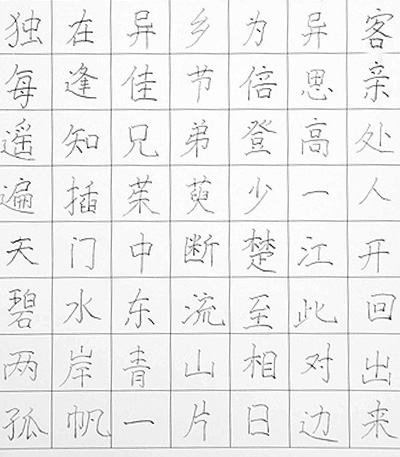 独在异乡为异客
每逢佳节倍思亲
遥知兄弟登高处
遍插茱萸少一人
天门中断楚江开
碧水东流至此回
两岸青山相对出
孤帆一片日边来